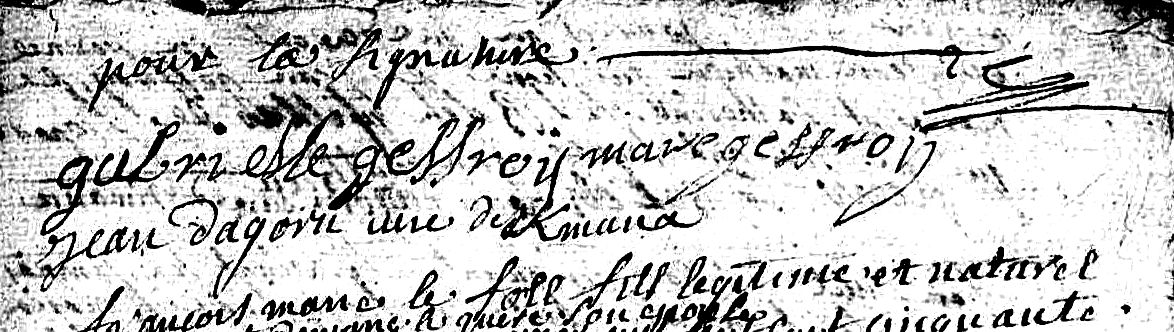 pour la signature
gabrielle geffroy marc geffroy
jean dagorn cure de Kmaria
françois marie le fill legitime et naturel
cinquante